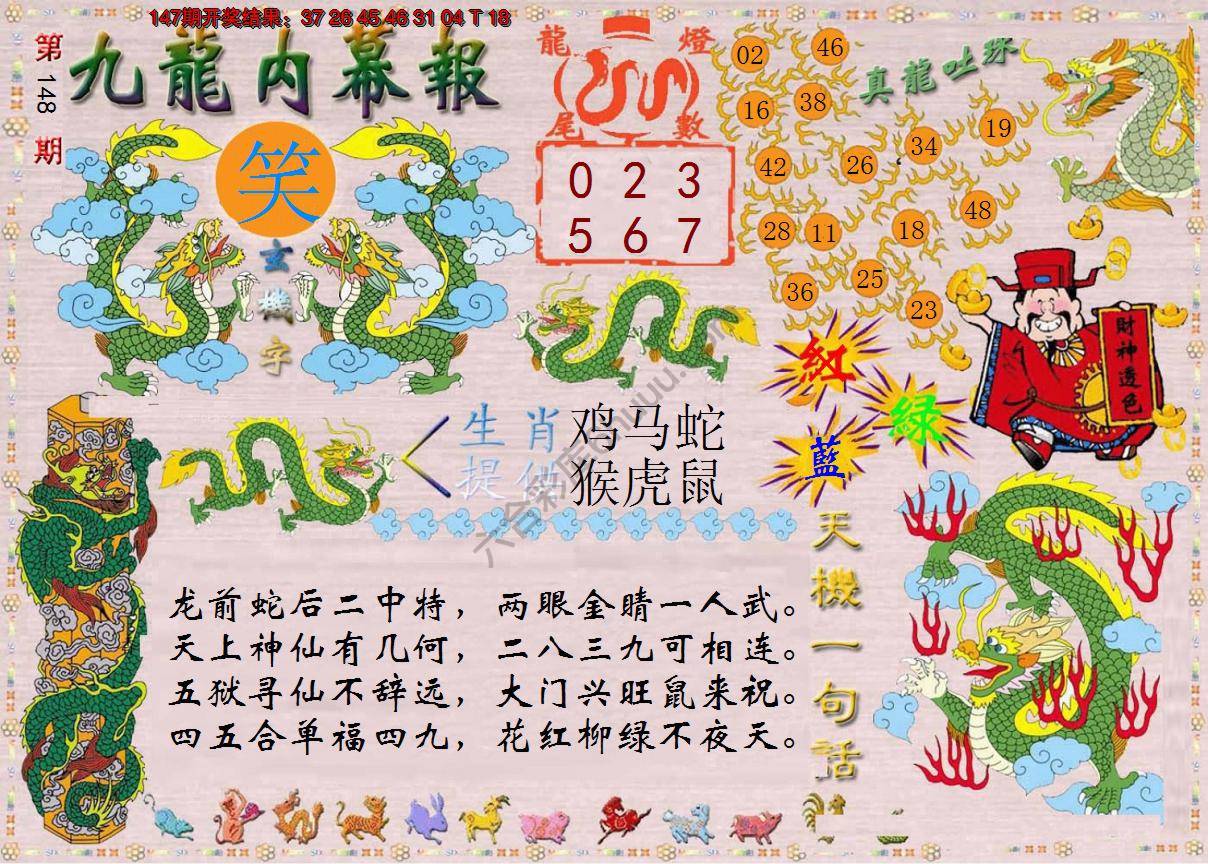 147期开奖结果：37 26 45 46 31 04 T 18
第148期
九龍内幕報
笑
玄機字
龍燈
尾數
0 2 3
5 6 7
真龍吐珠
02
46
16
38
19
34
42
26
48
28
11
18
25
36
23
財神透色
紅
綠
藍
生肖
提供
鸡马蛇
猴虎鼠
天機一句話
龙前蛇后二中特，两眼金睛一人武。
天上神仙有几何，二八三九可相连。
五狱寻仙不辞远，大门兴旺鼠来祝。
四五合单福四九，花红柳绿不夜天。